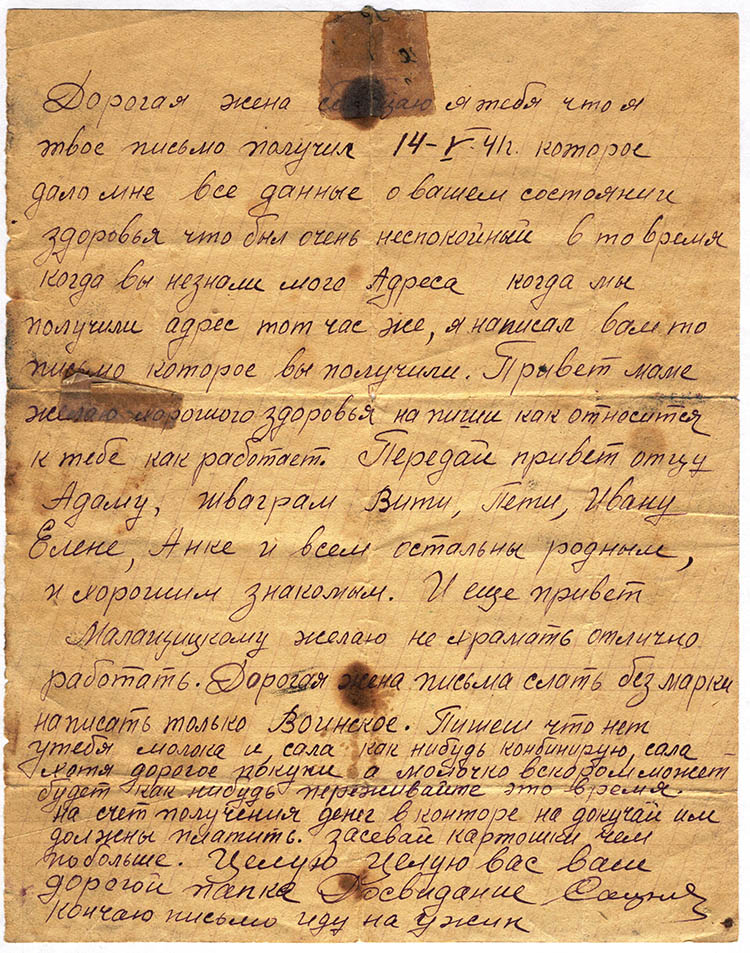 Дорогая жена сообщаю я тебя что я
твое письмо получил 14-V-41г. которое
дало мне все данные о вашем состоянии
здоровья что был очень неспокойный в то время
когда вы незнали мого Адреса когда мы
получили адрес тот час же, я написал вам то
письмо которое вы получили. Привет маме
желаю хорошого здоровья напиши как относится
к тебе как работает. Передай привет отцу
Адаму, шваграм Вити, Пети, Ивану
Елене, Анке и всем остальны родным,
и хорошим знакомым. И еще привет
желаю не храмать отлично
работать. Дорогая жена письма слать без марки
написать только Воинское. Пишеш что нет
утебя молока и сала как нибудь конбинирую, сала
хотя дорогое а молочко вскором может
будет как нибудь переживайте это время.
на счет получения денег в конторе на докучай им
должны платить. засевай картошки чем
побольше. Целую Целую вас ваш
дорогой папка Досвидание
Кончаю письмо иду на ужин